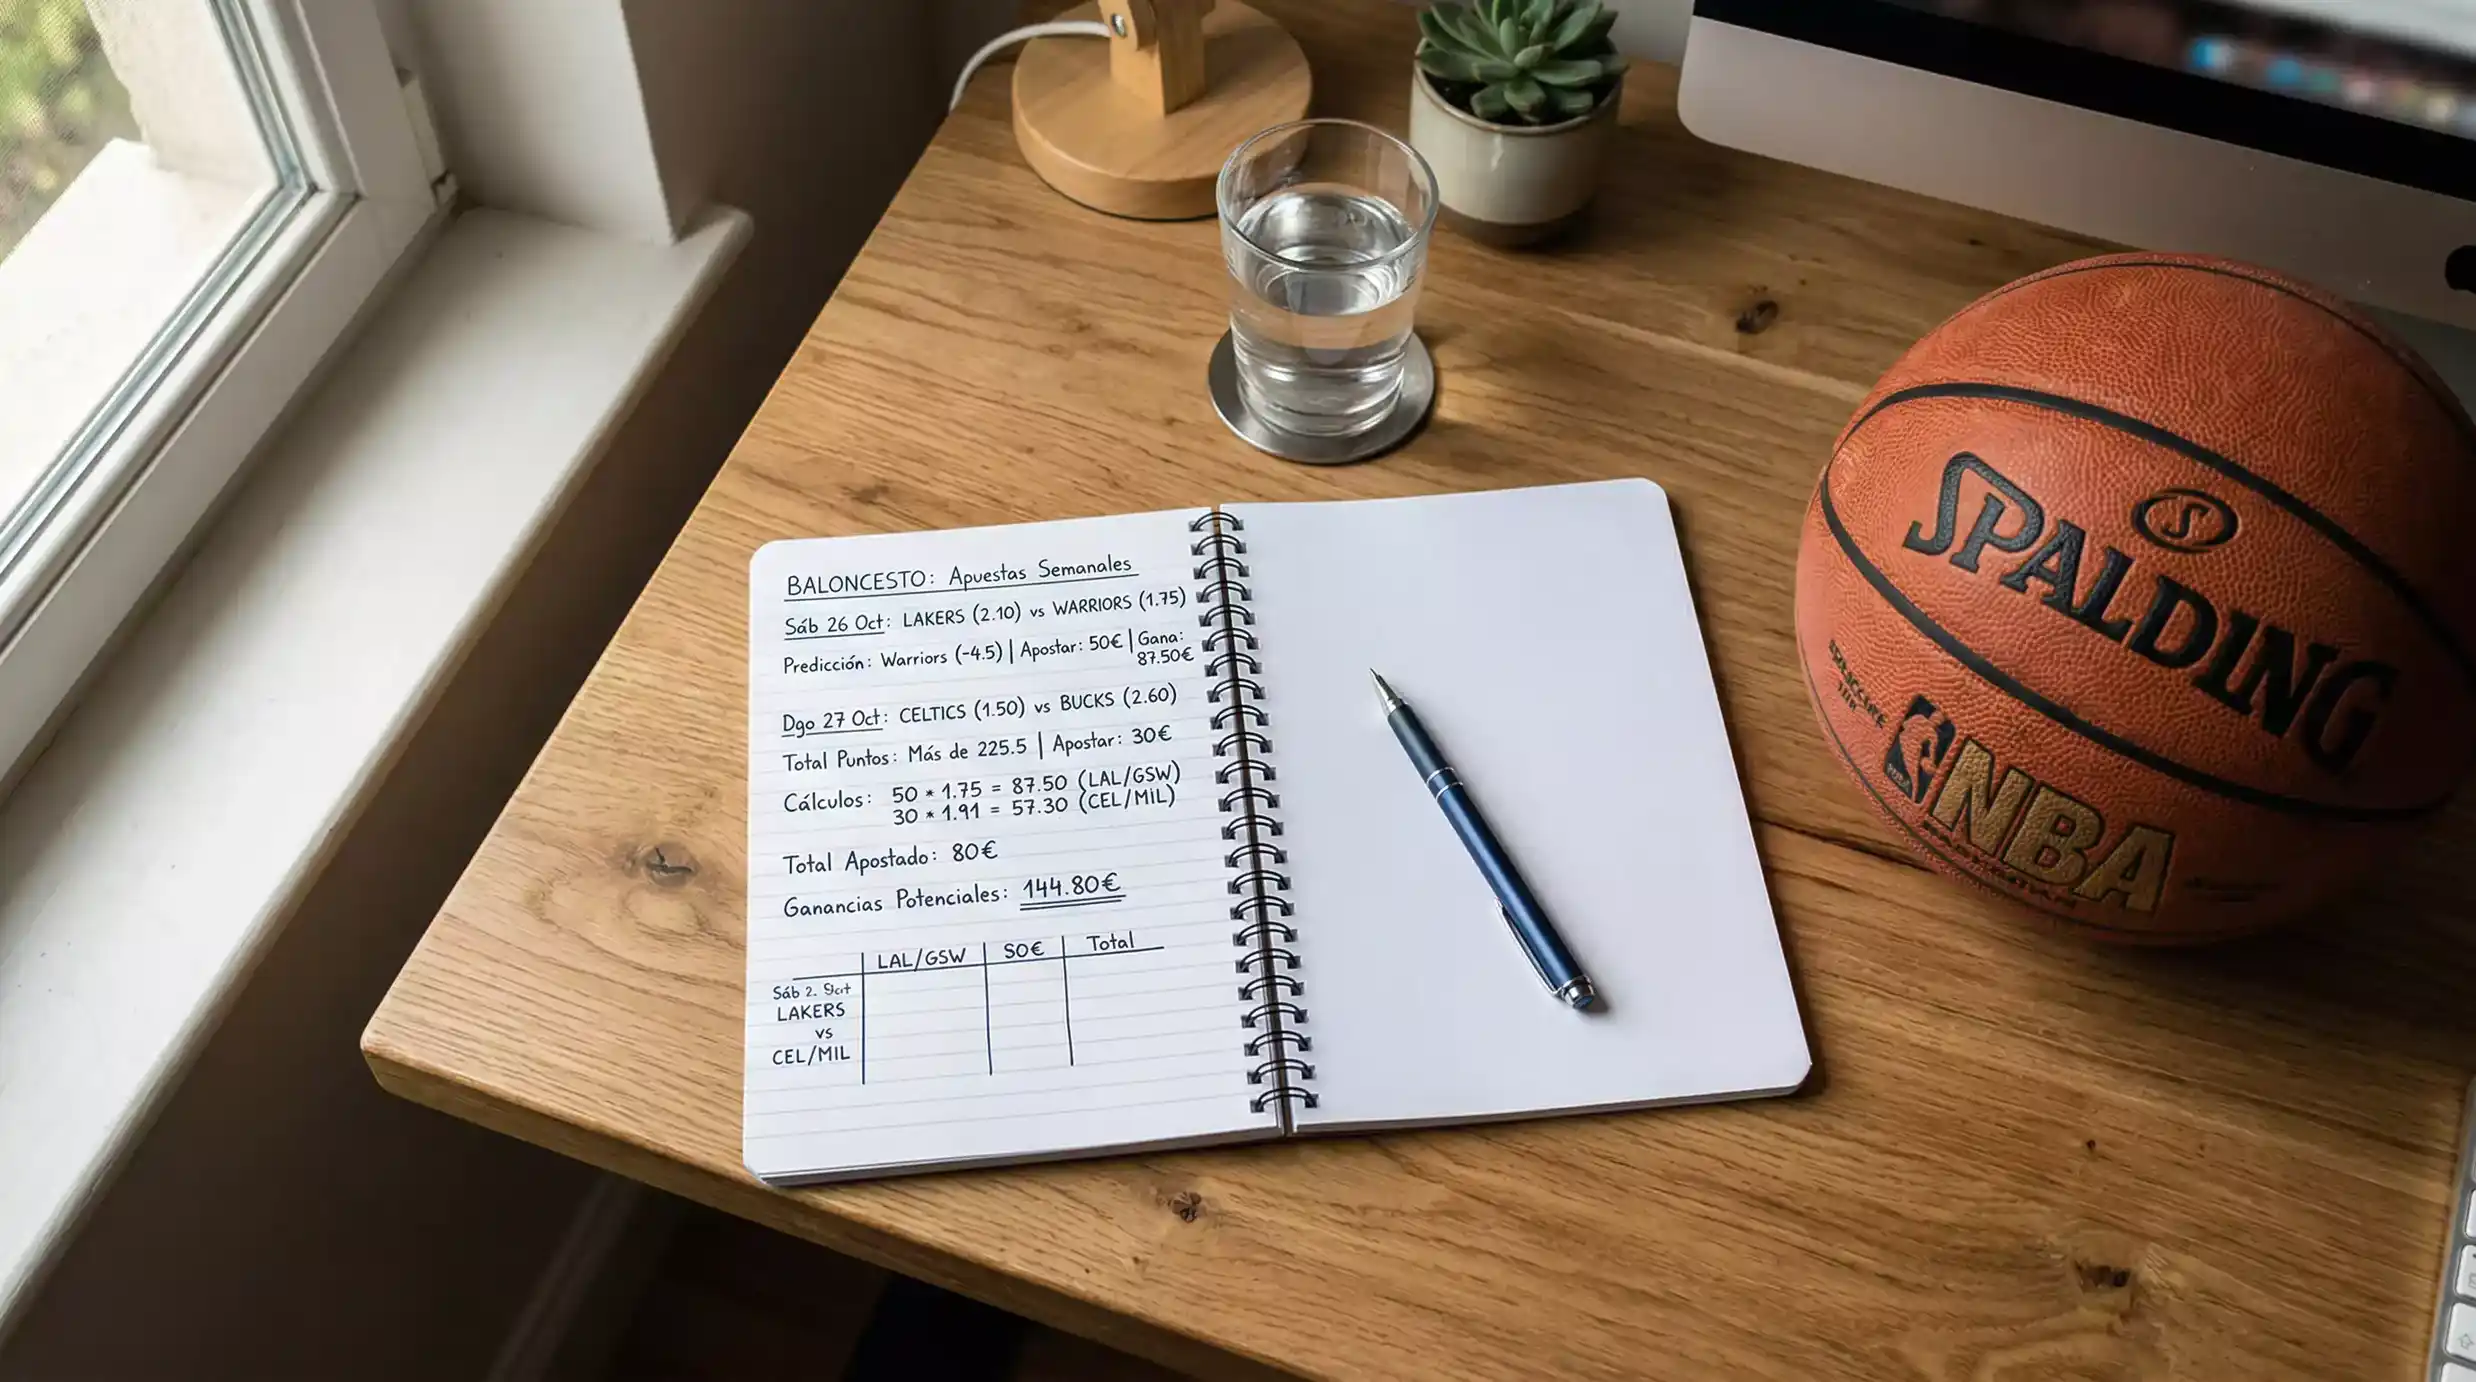 BALONCESTO: Apuestas Semanales
Sáb 26 Oct: LAKERS (2.10) vs WARRIORS (1.75)
Predicción: Warriors (-4.5) | Apostar: 50€ | Gana:
87.50€
Dgo 27 Oct: CELTICS (1.50) vs BUCKS (2.60)
Total Puntos: Más de 225.5 | Apostar: 30€
Cálculos: 50 * 1.75 = 87.50 (LAL/GSW)
30 * 1.91 = 57.30 (CEL/MIL)
Total Apostado: 80€
Ganancias Potenciales: 144.80€
LAL/GSW SO€ Total
Sáb 2.
LAKERS
vs
CEL/MIL
S
SPALDING
NBA